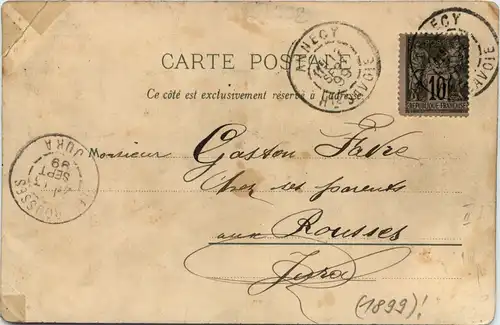 CARTE POSTALE
Ce côté est exclusivement réservé à l'adresse
ANNECY
Hte SAVOIE
10
REPUBLIQUE FRANÇAISE
ECY
SAVOIE
Monsieur Gaston Favre
Chez ses parents
aux Rousses
Jura
(1899)!
LES ROUSSES
JURA
SEPT
99